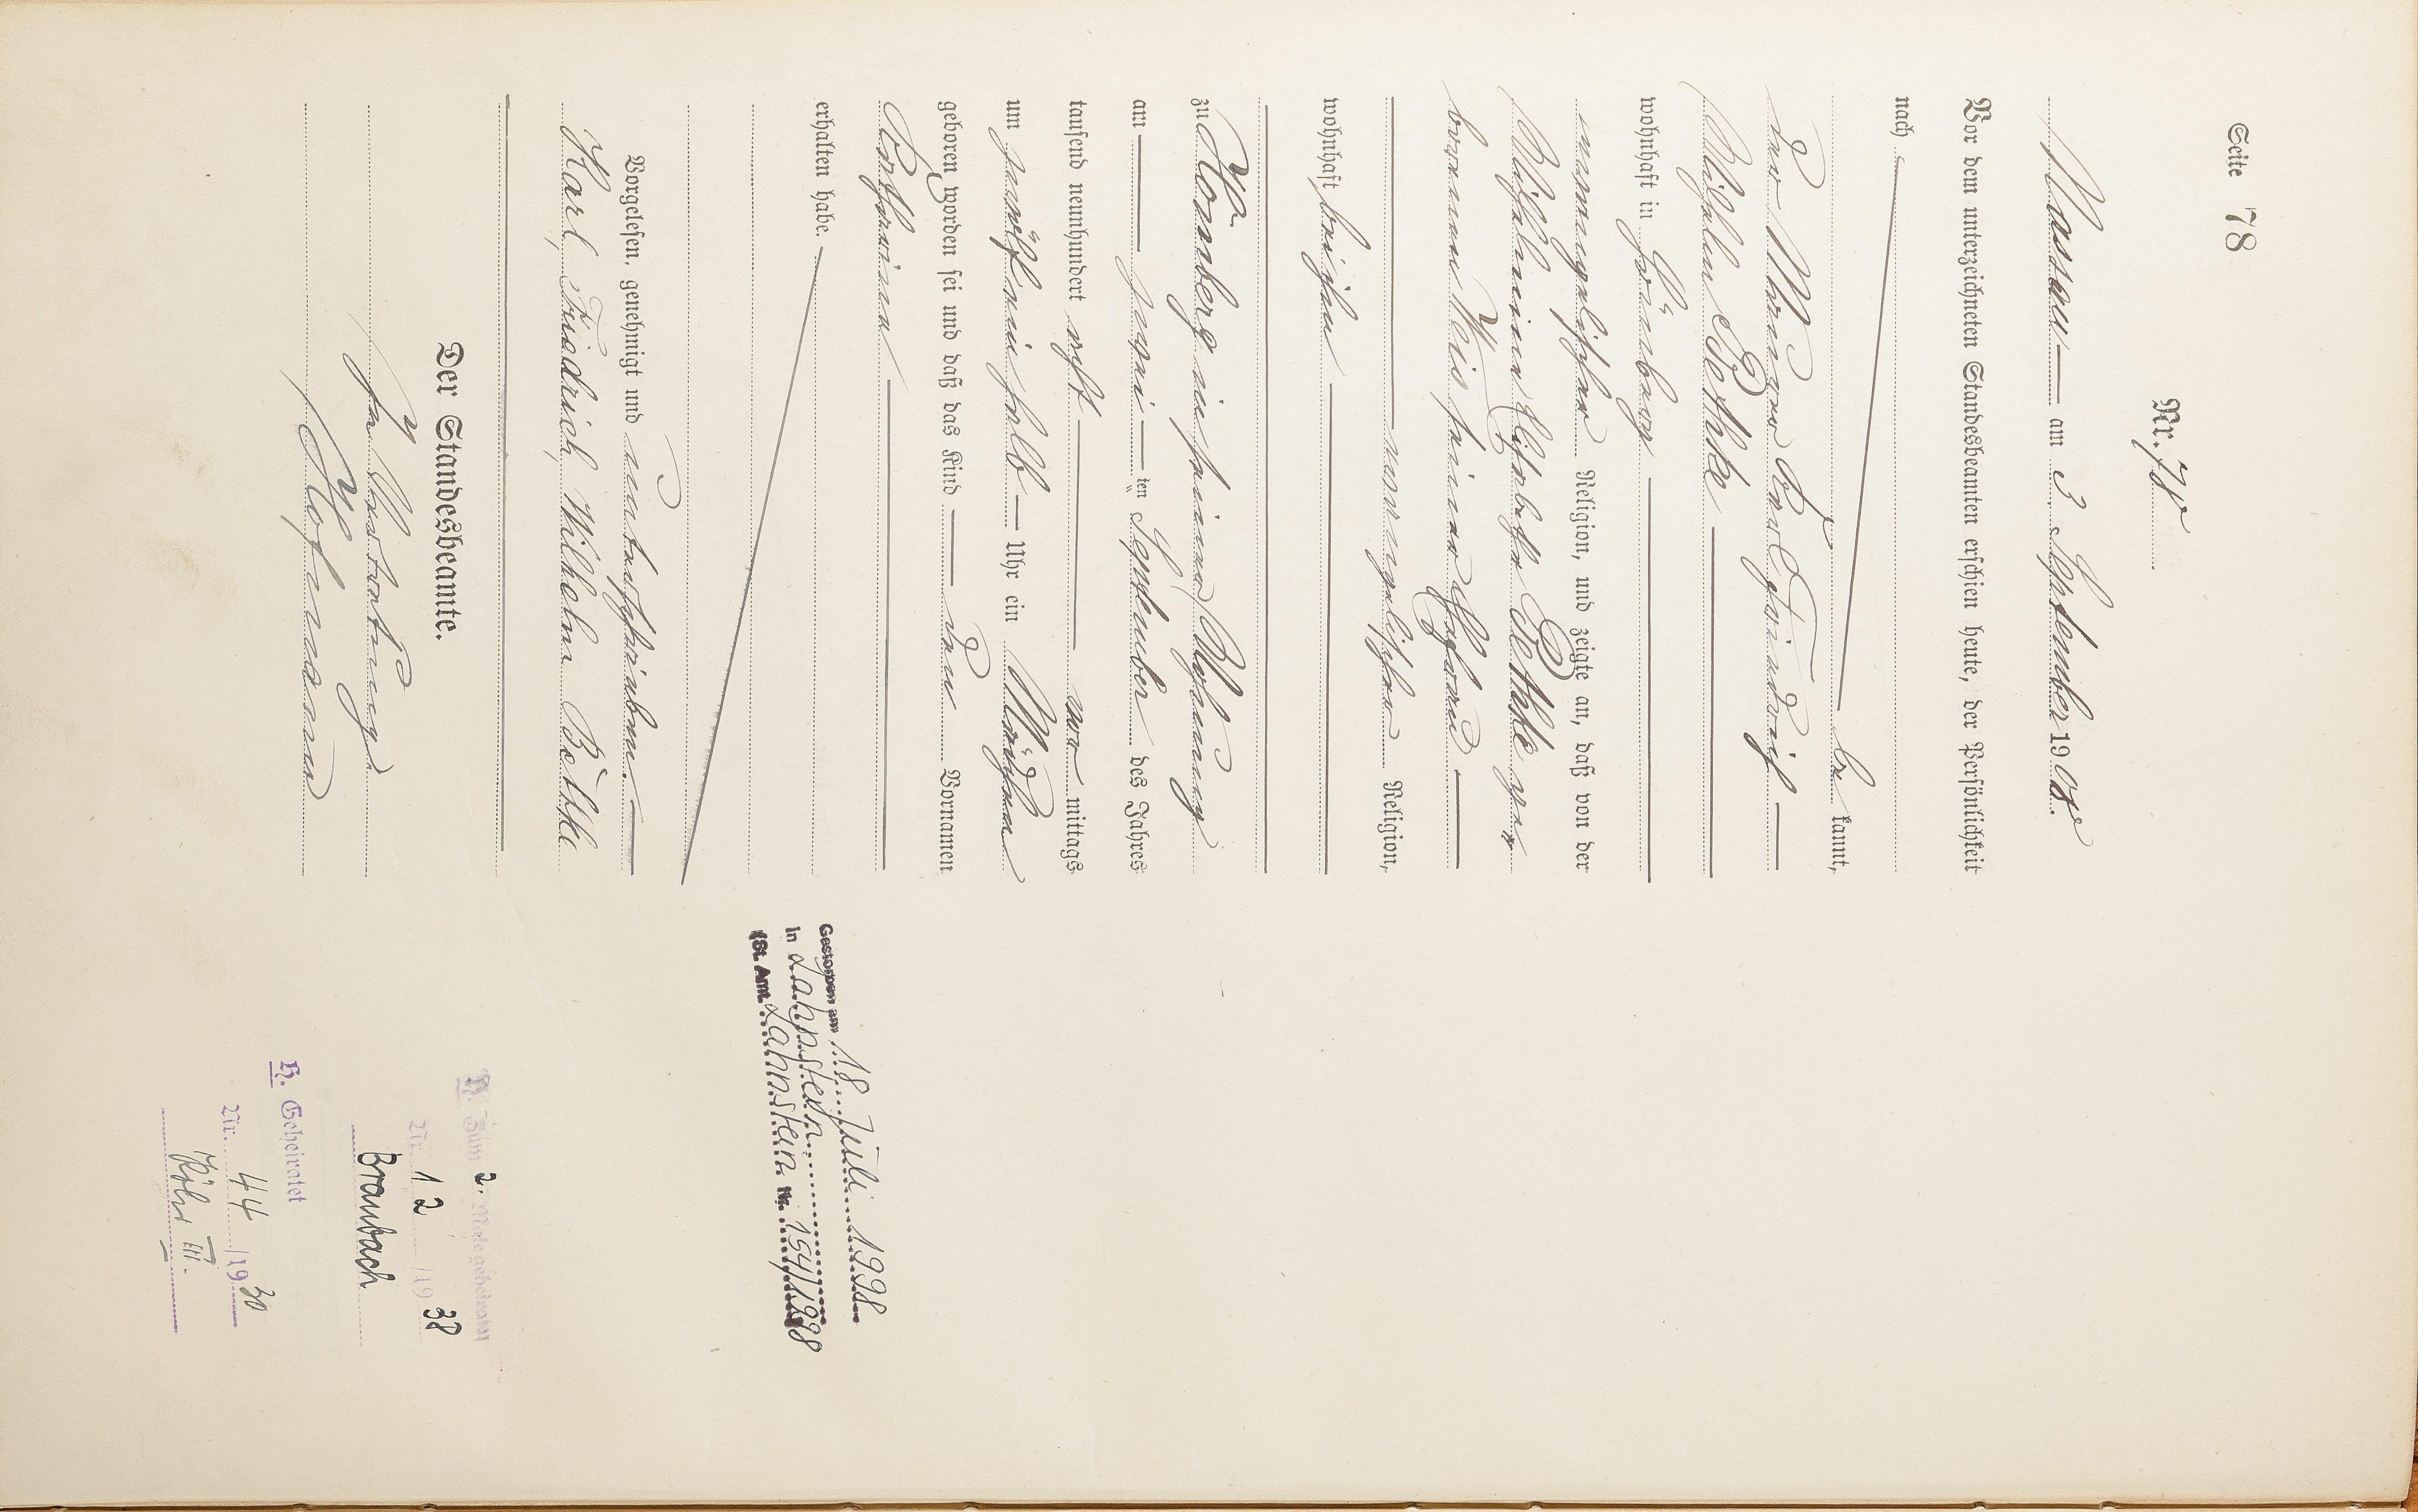 Seite 78
Nr. 78
Nassau am 3. September 1908.
Vor dem unterzeichneten Standesbeamten erschien heute, der Persönlichkeit
nach
be kannt,
der Maurer Karl Friedrich
Wilhelm Bethke
wohnhaft in Hömberg
evangelischer Religion, und zeigte an, daß von der
Wilhelmine Elisabethe Bethke ge-
borenen Weis seiner Ehefrau
evangelischer Religion,
wohnhaft bei ihm
zu Hömberg in seiner Wohnung
am zwei ten September des Jahres
tausend neunhundert acht vor mittags
um zwölf ein halb Uhr ein Mädchen
geboren worden sei und daß das Kind den Vornamen
Katharina
erhalten habe.
Vorgelesen, genehmigt und unterschrieben.
Karl, Friedrich, Wilhelm Bethke
Der Standesbeamte.
In Vertretung
Hofmann
Gestorben am 18. Juli 1998
in Lahnstein
(St. Amt. Lahnstein Nr. 154/1998
H. Zum 2. Male geheiratet
Nr. 12 /1938
Braubach
H. Geheiratet
Nr. 44 /1930
Köln III.